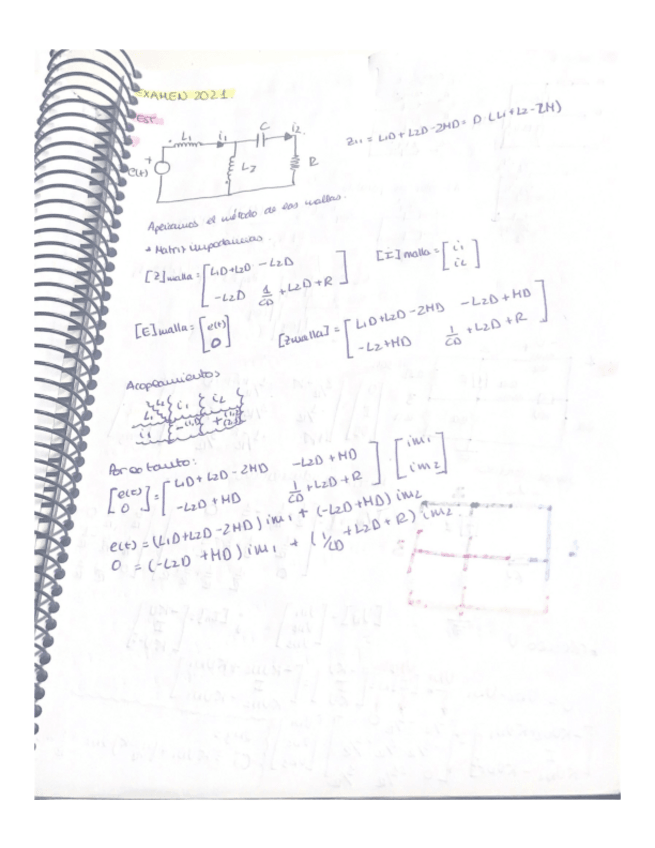 EXAMEN 2021.
TEST.
L1 i1 C i2.
e(t) + L2 R
Z11 = L1D + L2D - 2MD = D · (L1 + L2 - 2M)
Aplicamos el método de las mallas.
* Matriz impedancias.
[Z]malla = [ L1D+L2D -L2D
-L2D 1/CD + L2D + R ]
[I]malla = [ i1
i2 ]
[E]malla = [ e(t)
0 ]
[Zmalla] = [ L1D+L2D-2MD -L2D+MD
-L2+MD 1/CD + L2D + R ]
Acoplamientos
L1 i1 i2
Por lo tanto:
[ e(t)
0 ] = [ L1D + L2D - 2MD -L2D + MD
-L2D + MD 1/CD + L2D + R ] · [ im1
im2 ]
e(t) = (L1D+L2D-2MD) im1 + (-L2D+MD) im2
0 = (-L2D + MD) im1 + (1/CD + L2D + R) im2